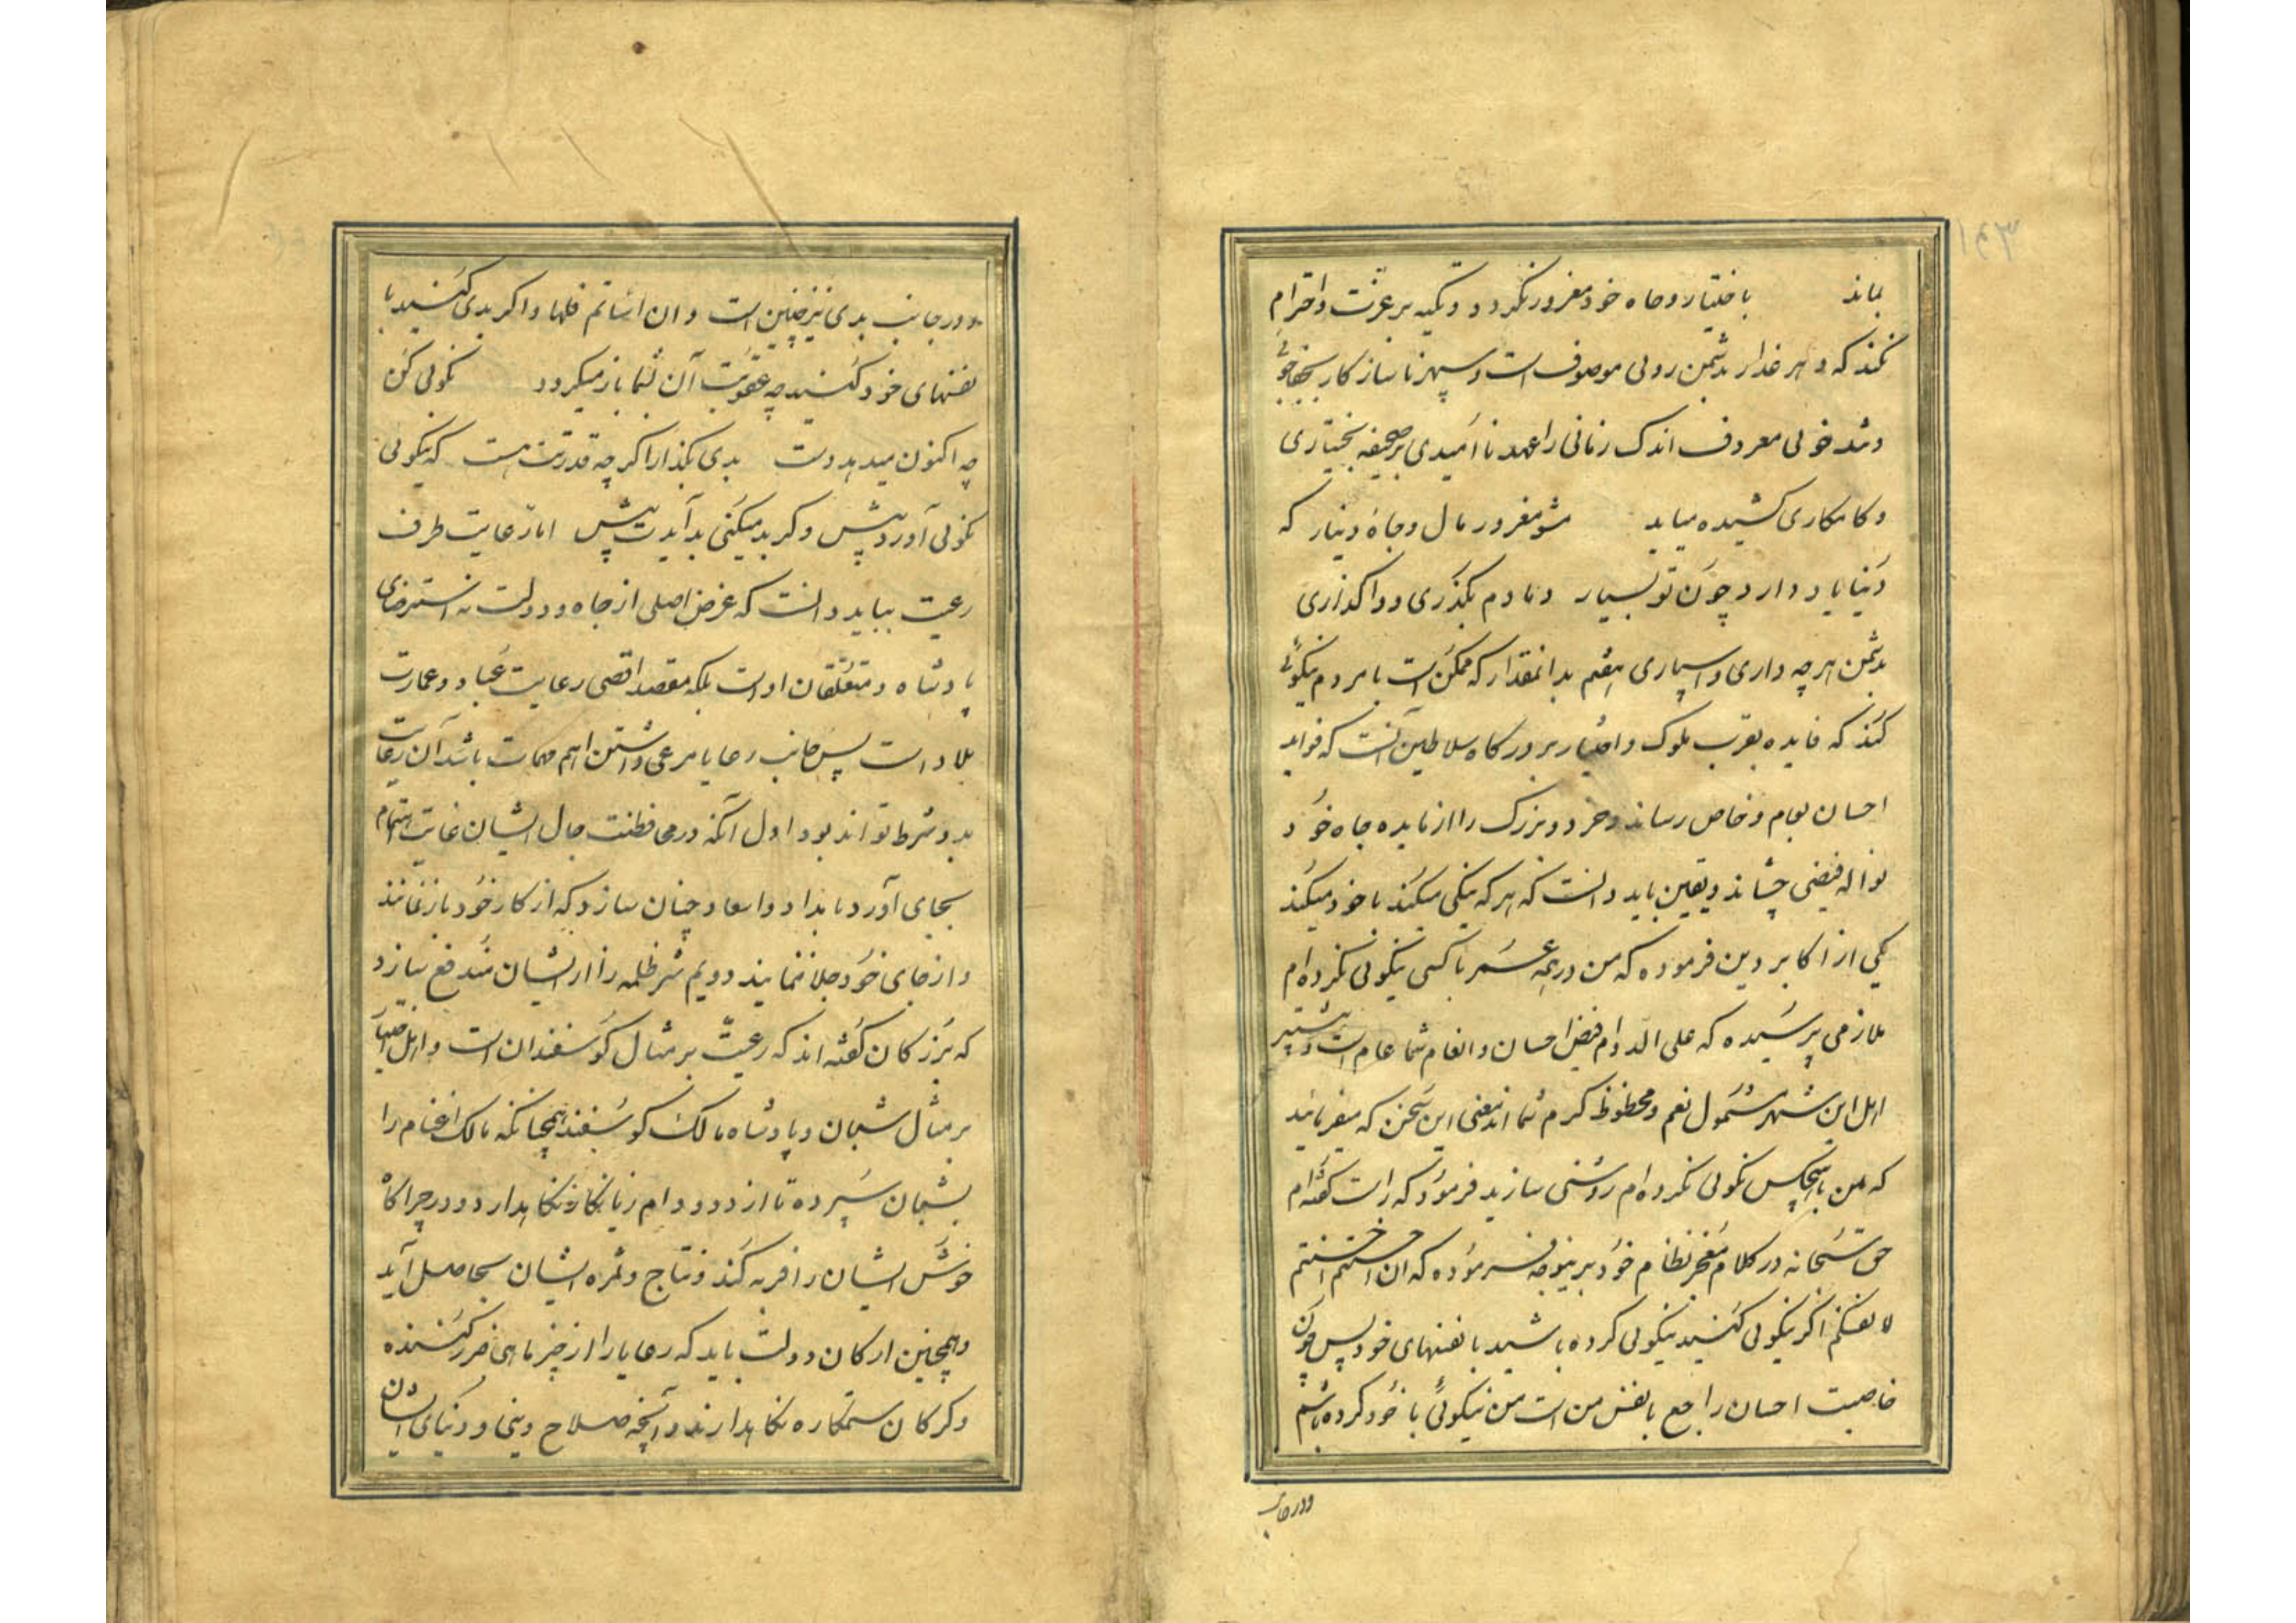 بماند باختیار و جاه خود مغرور نکردد و تکیه بر عزت و احترام
نکند که دهر غدار بدشمن روئی موصوف است و سپهر ناسازکار
وتند خوئی معروف اندک زمانی را عهد نا امیدی بر صحیفه بختیاری
و کامکاری کشیده میاید مشو مغرور مال و جاه دنیا که
دنیا یاد دارد چون تو بسیار دمادم بگذری و واگذاری
بدشمن هرچه داری و اسپاری هفتم بدانمقدار که ممکن است با مردم نیکوئی
کند که فایده بقرب ملوک و اختیار بر درکاه سلاطین آنست که فواید
احسان بعام و خاص رساند و خرد و بزرک را از مایده جاه خود
نواله فیضی چشاند و یقین باید دانست که هر که نیکی میکند با خود میکند
یکی از اکابر دین فرموده که من در همه عمر با کسی نیکوئی نکرده ام
ملازمی پرسیده که علی الدوام فیض احسان و انعام شما عام است و بیشتر
اهل این شهر مشمول نعم و محظوظ کرم شما اند معنی این سخن که میفرمائید
که من با هیچکس نکوئی نکرده ام روشنی سازید فرمود که راست کفته ام
حق سبحانه در کلام معجز نظام خود برینوجه فرموده که ان احسنتم احسنتم
لانفسکم اکر نیکوئی کنید نیکوئی کرده باشید با نفسهای خود پس چون
خاصیت احسان راجع بانفس من است من نیکوئی با خود کرده باشم
و در جانب
و در جانب بدی نیز چنین است و ان اساتم فلها و اکر بدی کنید با
نفسهای خود کنید چه عقوبت آن بشما باز میکردد نکوئی کن
چه اکنون میدهد دست بدی بگذار اکر چه قدرتت هست که نیکوئی
نکوئی آورد پیش و کر بد میکنی بد آیدت پیش اما رعایت طرف
رعیت بباید دانست که غرض اصلی از جاه و دولت نه استرضای
پادشاه و متعلقان اوست بلکه مقصد اقصی رعایت عباد و عمارت
بلاد است پس جانب رعایا مرعی داشتن اهم مهمات باشد آن رعایت
بدو شرط تواند بود اول آنکه در محافظت حال ایشان غایت اهتمام
بجای آورد بامداد و اسعاد چنان سازد که از کار خود باز نمانند
و از جای خود جلا ننمایند دویم شر ظلمه را از ایشان مندفع سازد
که بزرکان کفته اند که رعیت بر مثال کوسفندان است و اهل اختیار
بر مثال شبان و پادشاه مالک کوسفند همچنانکه مالک اغنام را
بشبان سپرده تا از دد و دام زیانکار نکاهدارد و در چراکاه
خوش ایشان را فربه کند و نتاج و ثمره ایشان بحاصل آید
و همچنین ارکان دولت باید که رعایا را از چیزهای ضرر کننده
و کرکان ستمکاره نکاهدارند و آنچه صلاح دینی و دنیای ایشان